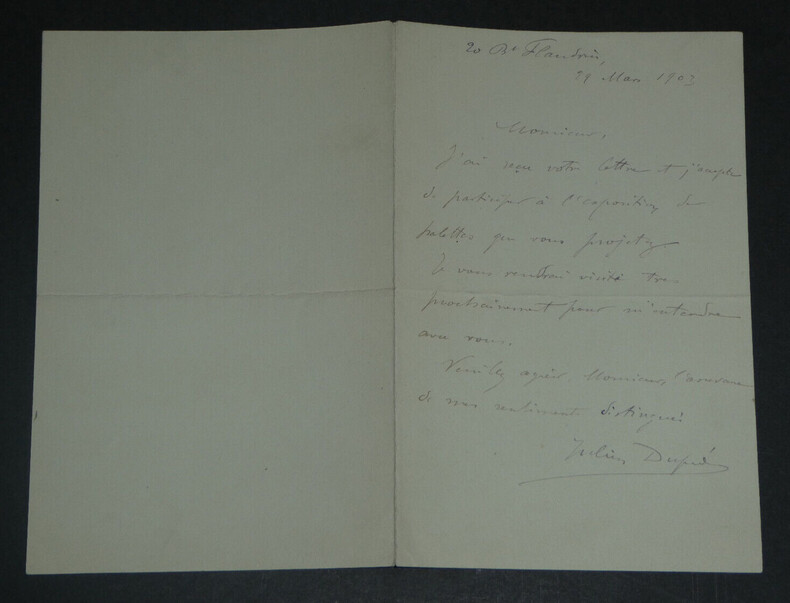 20 Bd Flandrin,
29 Mars 1903
Monsieur,
J'ai reçu votre lettre et j'accepte
de participer à l'exposition de
palettes que vous projetez
Je vous rendrai visite très
prochainement pour m'entendre
avec vous.
Veuillez agréer Monsieur l'assurance
de mes sentiments distingués
Julien Dupré